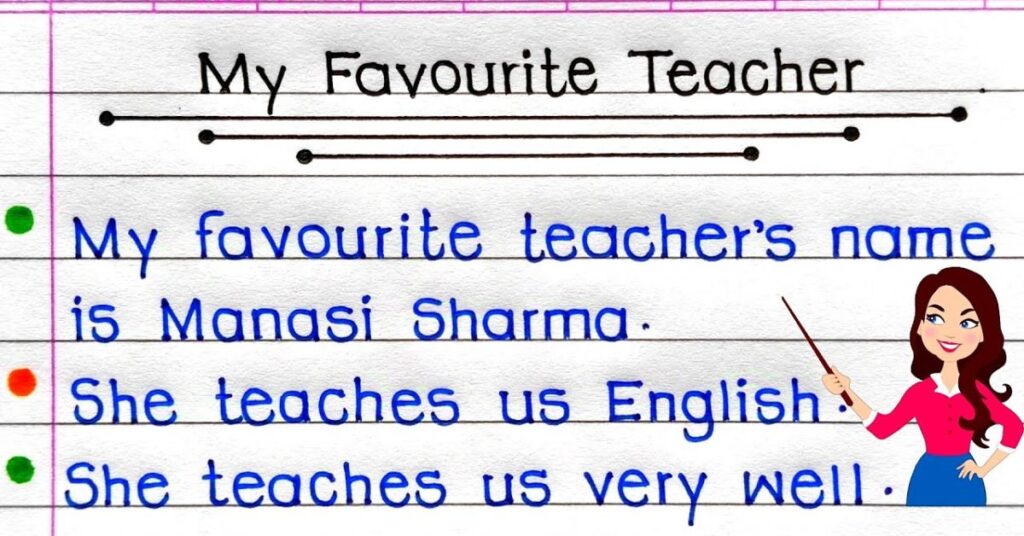 My Favourite Teacher
My favourite teacher's name
is Manasi Sharma.
She teaches us English.
She teaches us very well.